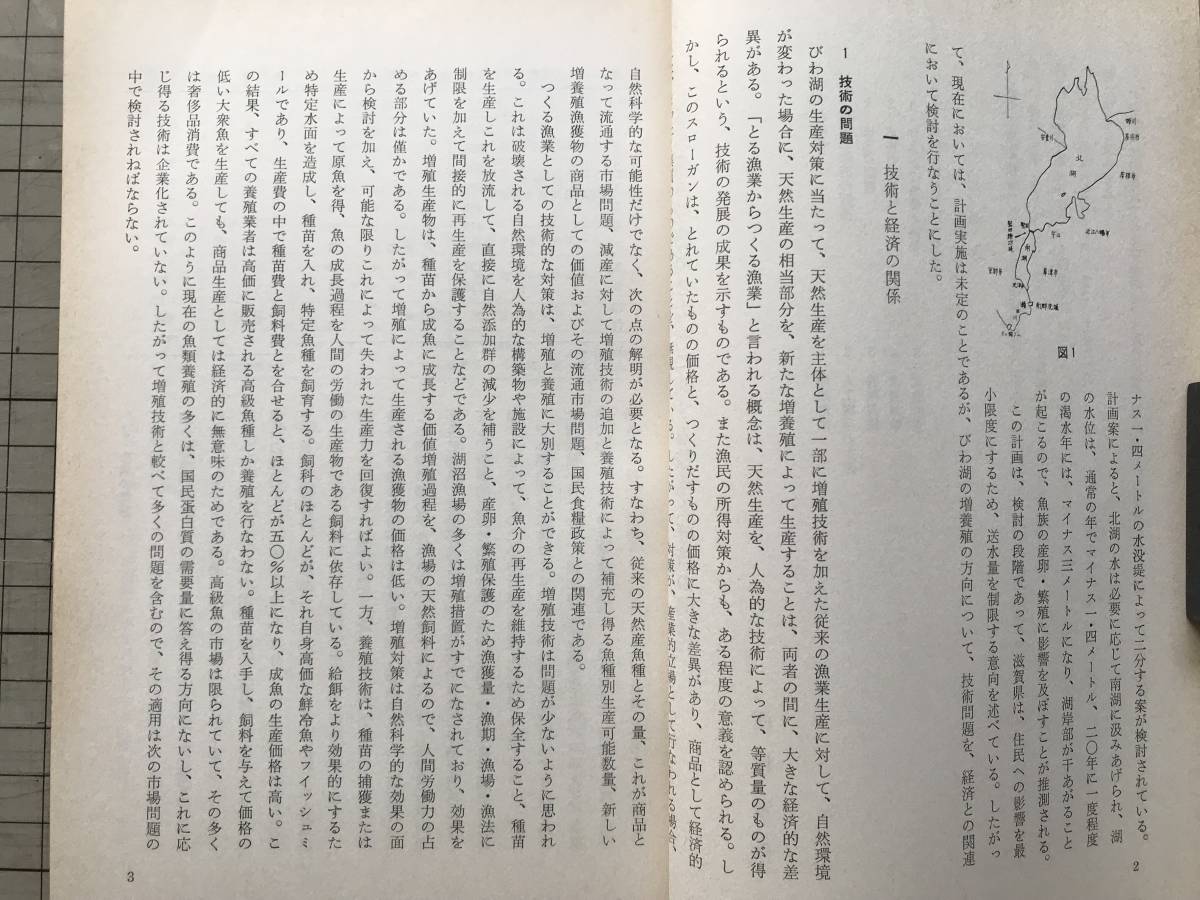 ナス一・四メートルの水没堤によって二分する案が検討されている。
計画案によると、北湖の水は必要に応じて南湖に汲みあげられ、湖
の水位は、通常の年でマイナス一・四メートル、二〇年に一度程度
の渇水年には、マイナス三メートルになり、湖岸部が干あがること
が起こるので、魚族の産卵・繁殖に影響を及ぼすことが推測される。
この計画は、検討の段階であって、滋賀県は、住民への影響を最
小限度にするため、送水量を制限する意向を述べている。したがっ
図1
北湖
南湖
彦根市
近江八幡市
守山
草津市
堅田
安曇川
て、現在においては、計画実施は未定のことであるが、びわ湖の増養殖の方向について、技術問題を、経済との関連
において検討を行なうことにした。
一 技術と経済の関係
1 技術の問題
びわ湖の生産対策に当たって、天然生産を主体として一部に増殖技術を加えた従来の漁業生産に対して、自然環境
が変わった場合に、天然生産の相当部分を、新たな増養殖によって生産することは、両者の間に、大きな経済的な差
異がある。「とる漁業からつくる漁業」と言われる概念は、天然生産を、人為的な技術によって、等質量のものが得
られるという、技術の発展の成果を示すものである。また漁民の所得対策からも、ある程度の意義を認められる。し
かし、このスローガンは、とれていたものの価格と、つくりだすものの価格に大きな差異があり、商品として経済的
している。したがって、対策が、産業的立場として行なわれる場合、
2
自然科学的な可能性だけでなく、次の点の解明が必要となる。すなわち、従来の天然産魚種とその量、これが商品と
なって流通する市場問題、減産に対して増殖技術の追加と養殖技術によって補充し得る魚種別生産可能数量、新しい
増養殖漁獲物の商品としての価値およびその流通市場問題、国民食糧政策との関連である。
つくる漁業としての技術的な対策は、増殖と養殖に大別することができる。増殖技術は問題が少ないように思われ
る。これは破壊される自然環境を人為的な構築物や施設によって、魚介の再生産を維持するため保全すること、種苗
を生産しこれを放流して、直接に自然添加群の減少を補うこと、産卵・繁殖保護のため漁獲量・漁期・漁場・漁法に
制限を加えて間接的に再生産を保護することなどである。湖沼漁場の多くは増殖措置がすでになされており、効果を
あげていた。増殖生産物は、種苗から成魚に成長する価値増殖過程を、漁場の天然飼料によるので、人間労働力の占
める部分は僅かである。したがって増殖によって生産される漁獲物の価格は低い。増殖対策は自然科学的な効果の面
から検討を加え、可能な限りこれによって失われた生産力を回復すればよい。一方、養殖技術は、種苗の捕獲または
生産によって原魚を得、魚の成長過程を人間の労働の生産物である飼料に依存している。給餌をより効果的にするた
め特定水面を造成し、種苗を入れ、特定魚種を飼育する。飼料のほとんどが、それ自身高価な鮮冷魚やフイッシュミ
ールであり、生産費の中で種苗費と飼料費とを合せると、ほとんどが五〇%以上になり、成魚の生産価格は高い。こ
の結果、すべての養殖業者は高価に販売される高級魚種しか養殖を行なわない。種苗を入手し、飼料を与えて価格の
低い大衆魚を生産しても、商品生産としては経済的に無意味のためである。高級魚の市場は限られていて、その多く
は奢侈品消費である。このように現在の魚類養殖の多くは、国民蛋白質の需要量に答え得る方向にないし、これに応
じ得る技術は企業化されていない。したがって増殖技術と較べて多くの問題を含むので、その適用は次の市場問題の
中で検討されねばならない。
3